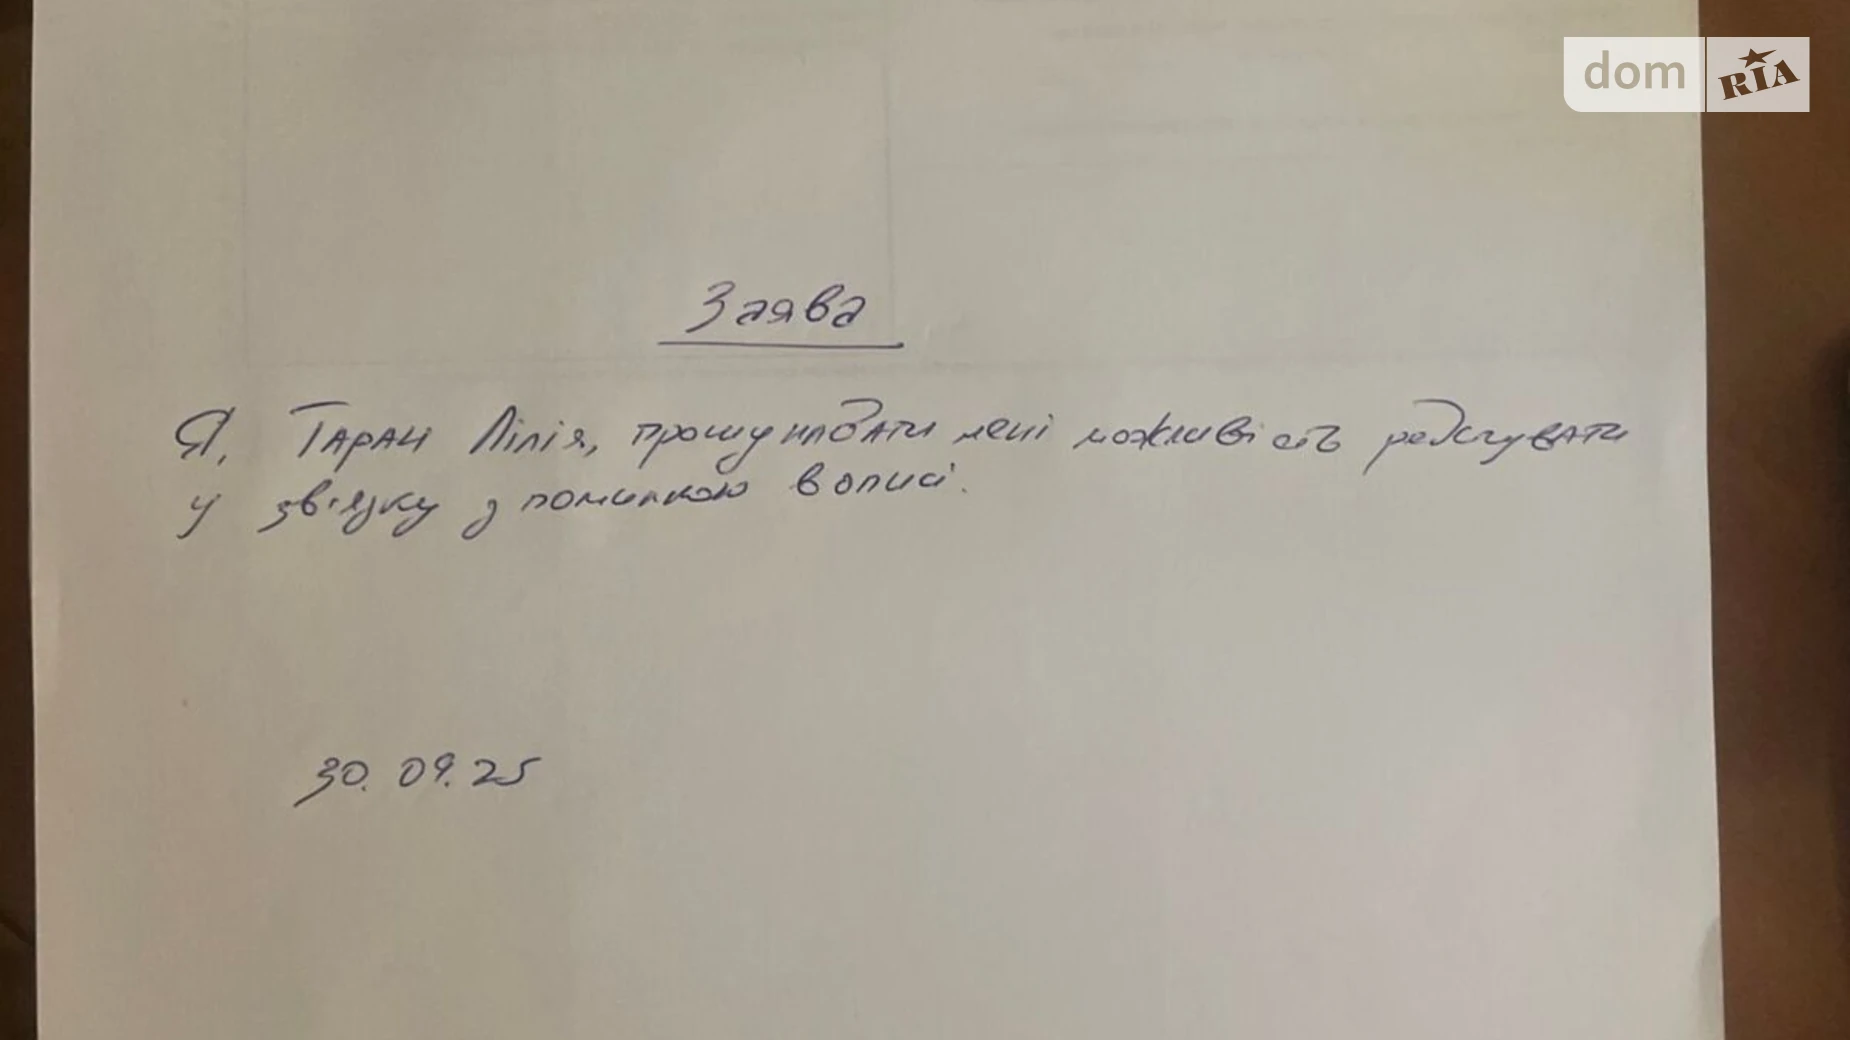 dom RIA
Заява
Я, Таран Лілія, прошу надати мені можливість редагувати
у зв'язку з помилкою в описі.
30.09.25